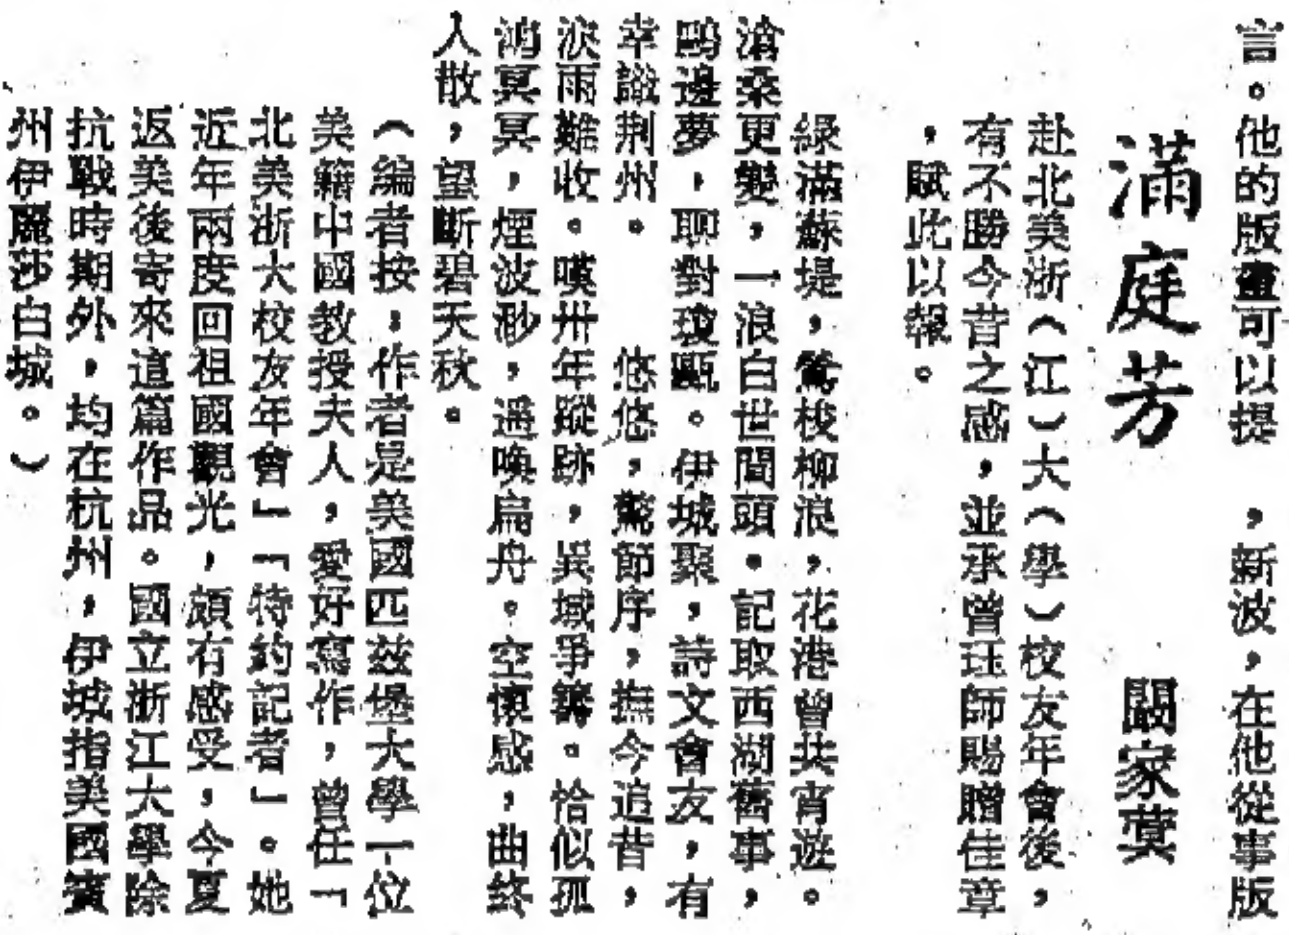 言。他的版畫可以提　，新波，在他從事版
滿庭芳　闞家蓂
赴北美浙（江）大（學）校友年會後，
有不勝今昔之感，並承曾珏師賜贈佳章
，賦此以報。
綠滿蘇堤，鶯梭柳浪，花港曾共宵遊。
滄桑更變，一浪白世間頭。記取西湖舊事，
鷗邊夢，聊對瓊甌。伊城聚，詩文會友，有
幸識荆州。　悠悠，驚節序，撫今追昔，
淚雨難收。嘆卅年蹤跡，異域爭籌。恰似孤
鴻冥冥，煙波渺，遥喚扁舟。空懷感，曲終
人散，望斷碧天秋。
（編者按：作者是美國匹兹堡大學一位
美籍中國教授夫人，愛好寫作，曾任「
北美浙大校友年會」「特約記者」。她
近年兩度回祖國觀光，頗有感受，今夏
返美後寄來這篇作品。國立浙江大學除
抗戰時期外，均在杭州，伊城指美國賓
州伊麗莎白城。）